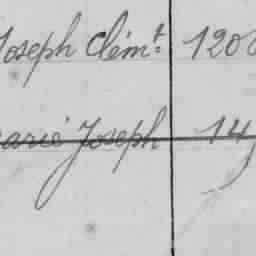 Joseph Clém.t 120
Marie Joseph 14